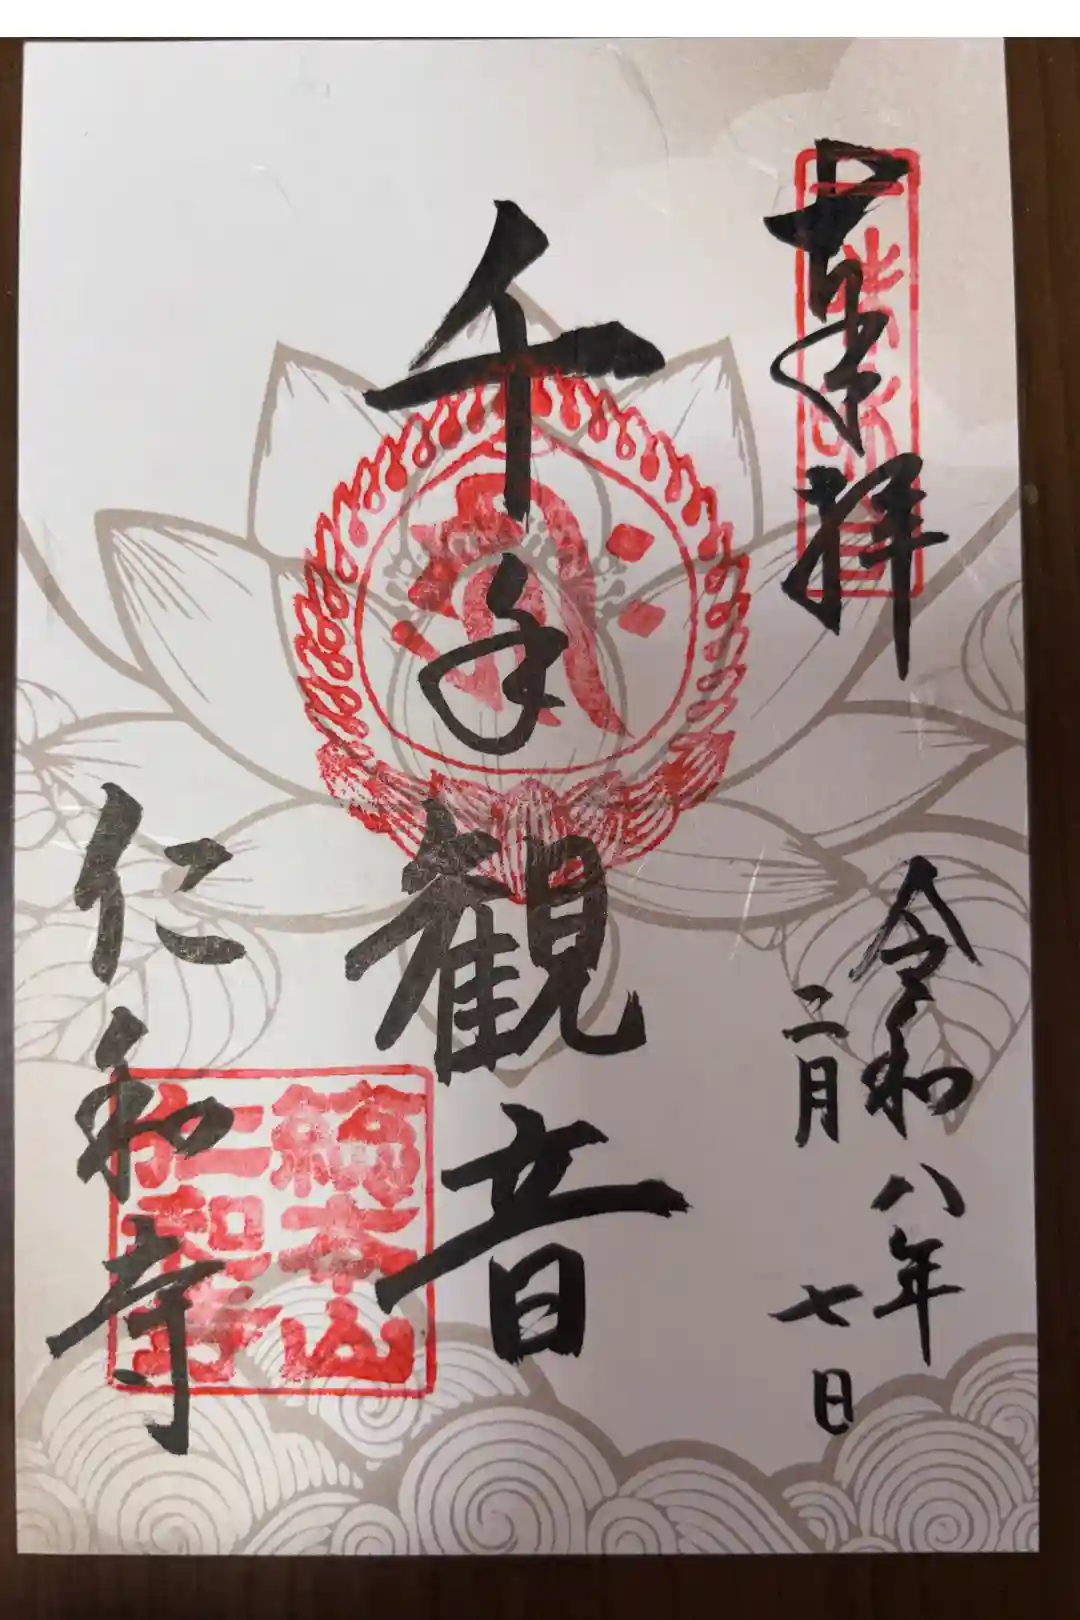 奉拝
令和八年
二月七日
千手観音
仁和寺
総本山
仁和寺